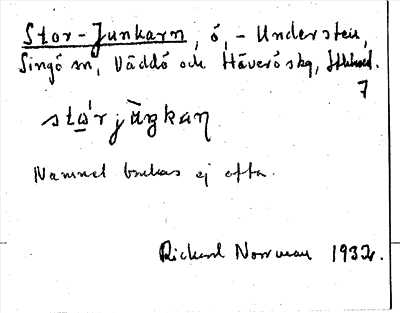 Stor-Junkarn, ö, - Understen,
Singö sn, Väddö och Häverö skg, Sthlms l.
7
sto̱'rjùŋkaɳ
Namnet brukas ej ofta.
Rickard Norrman 1932.